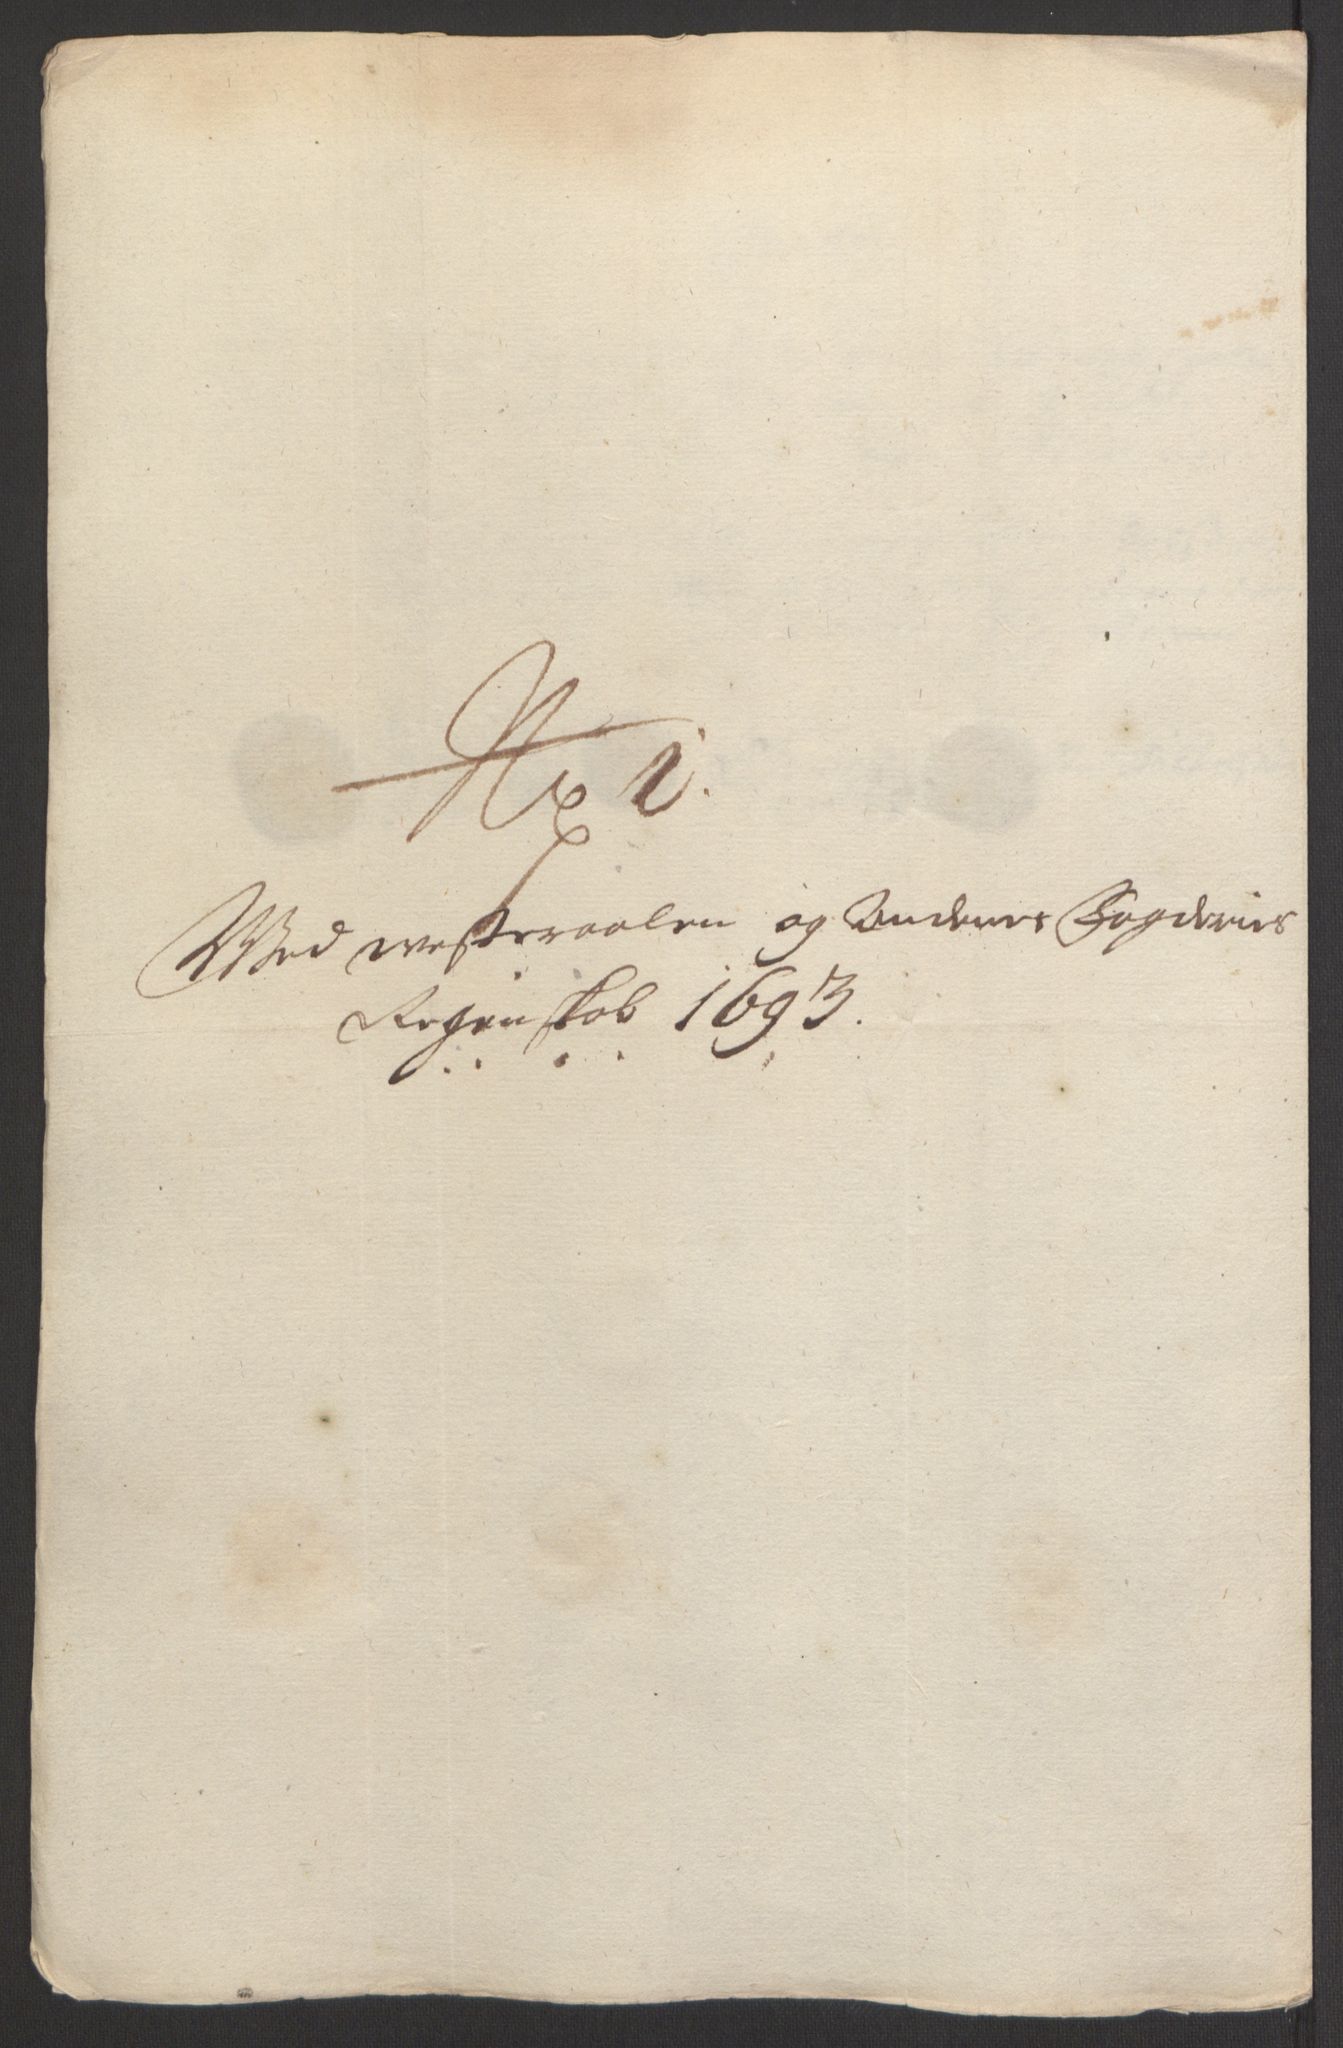 No 1.
Wed westeraalen og Andenes Fogderies
Regenskob 1693.